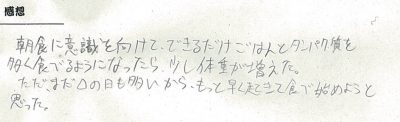 感想
朝食に意識を向けて、できるだけごはんとタンパク質を
多く食べるようになったら、少し体重が増えた。
ただ、まだΔの日も多いから、もっと早く起きて食べ始めようと
思った。